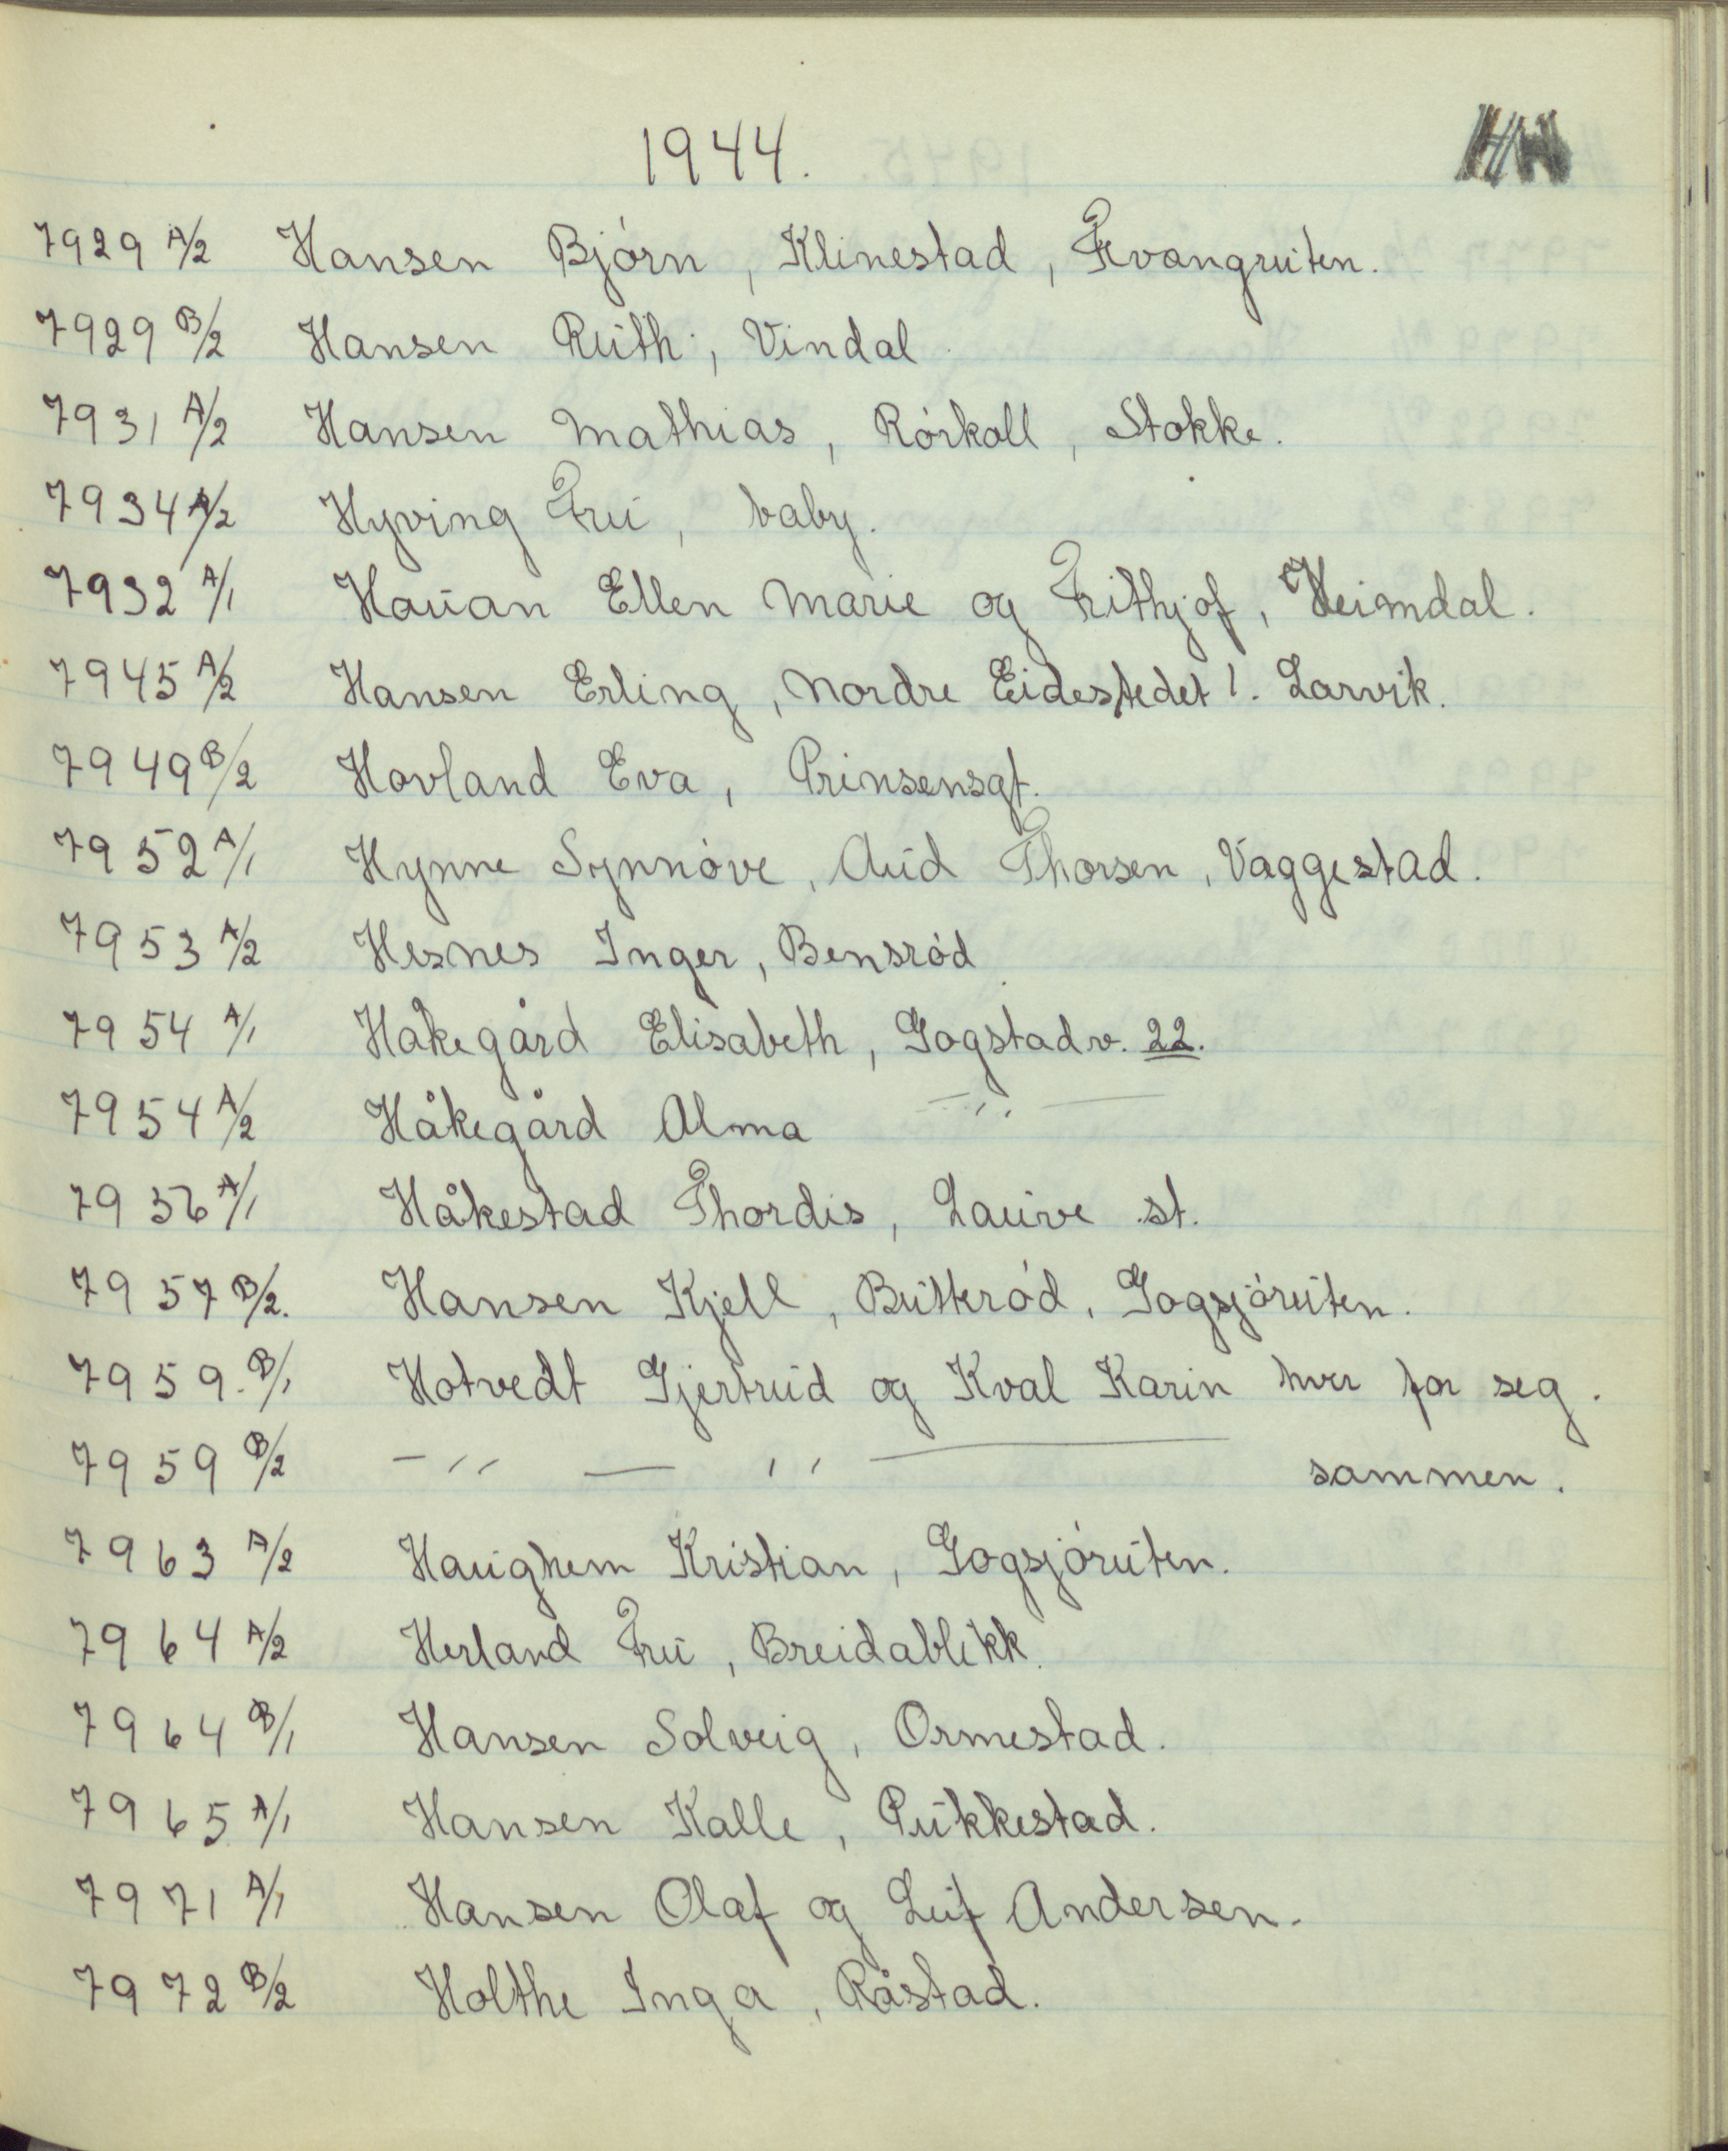 1944.
7929 A/2 Hansen Bjórn, Klinestad, Kvangruten.
7929 B/2 Hansen Ruth, Vindal
7931 A/2 Hansen Mathias, Rórkoll, Stokke.
7934 A/2 Hyving Fru, baby.
7932 A/1 Hauan Ellen Marie og Frithjof, Heimdal.
7945 A/2 Hansen Erling, Nordre Eidestedet 1. Larvik.
7949 B/2 Hovland Eva, Prinsensgt.
7952 A/1 Hynne Synnóve, Aud Thorsen, Vaggestad.
7953 A/2 Hesnes Inger, Bensród
7954 A/1 Håkegård Elisabeth, Gogstadv. 22.
7954 A/2 Håkegård Alma —,,—
7956 A/1 Håkestad Thordis, Lauve st.
7957 B/2. Hansen Kjell, Butkród, Gogsjóruten.
7959. B/1 Hotvedt Gjertrud og Kval Karin hver for seg.
7959 B/2 —,,— ,,— sammen.
7963 A/2 Haughem Kristian, Gogsjóruten.
7964 A/2 Herland Fru, Breidablikk.
7964 B/1 Hansen Solveig, Ormestad.
7965 A/1 Hansen Kalle, Pukkestad.
7971 A/1 Hansen Olaf og Leif Andersen.
7972 B/2 Holthe Inga, Råstad.